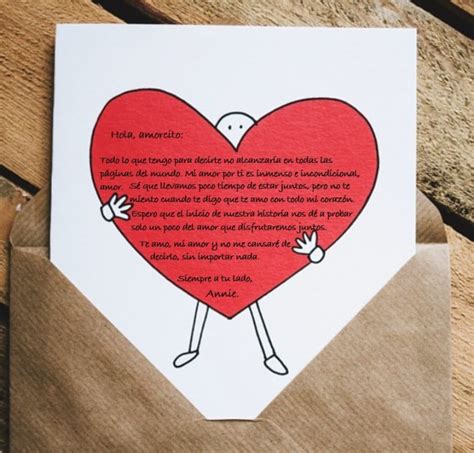 Hola, amorcito:
Todo lo que tengo para decirte no alcanzaría en todas las
páginas del mundo. Mi amor por ti es inmenso e incondicional,
amor. Sé que llevamos poco tiempo de estar juntos, pero no te
miento cuando te digo que te amo con todo mi corazón.
Espero que el inicio de nuestra historia nos dé a probar
solo un poco del amor que disfrutaremos juntos.
Te amo, mi amor y no me cansaré de
decirlo, sin importar nada.
Siempre a tu lado,
Annie.